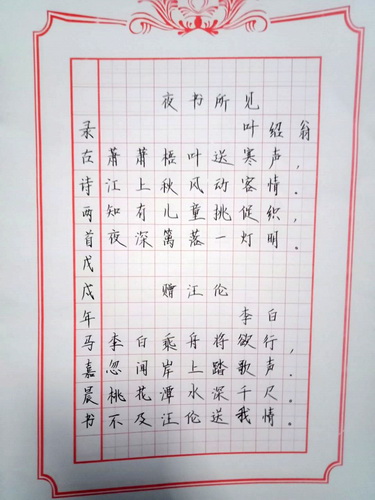 夜书所见
叶绍翁
萧萧梧叶送寒声，
江上秋风动客情。
知有儿童挑促织，
夜深篱落一灯明。
赠汪伦
李白
李白乘舟将欲行，
忽闻岸上踏歌声．
桃花潭水深千尺。
不及汪伦送我情。
录古诗两首戊戌年马嘉晨书